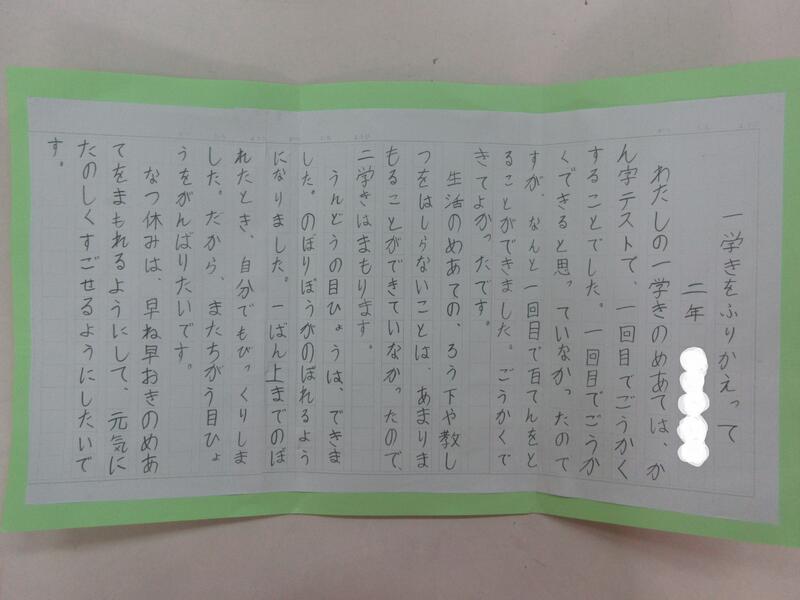 一学きをふりかえって
二年
わたしの一学きのめあては、か
ん字テストで、一回目でごうかく
することでした。一回目でごうか
くできると思っていなかったので
すが、なんと一回目で百てんをと
ることができました。ごうかくで
きてよかったです。
生活のめあての、ろう下や教し
つをはしらないことは、あまりま
もることができていなかったので、
二学きはまもります。
うんどうの目ひょうは、できま
した。のぼりぼうがのぼれるよう
になりました。一ばん上までのぼ
れたとき、自分でもびっくりしま
した。だから、またちがう目ひょ
うをがんばりたいです。
なつ休みは、早ね早おきのめあ
てをまもれるようにして、元気に
たのしくすごせるようにしたいで
す。